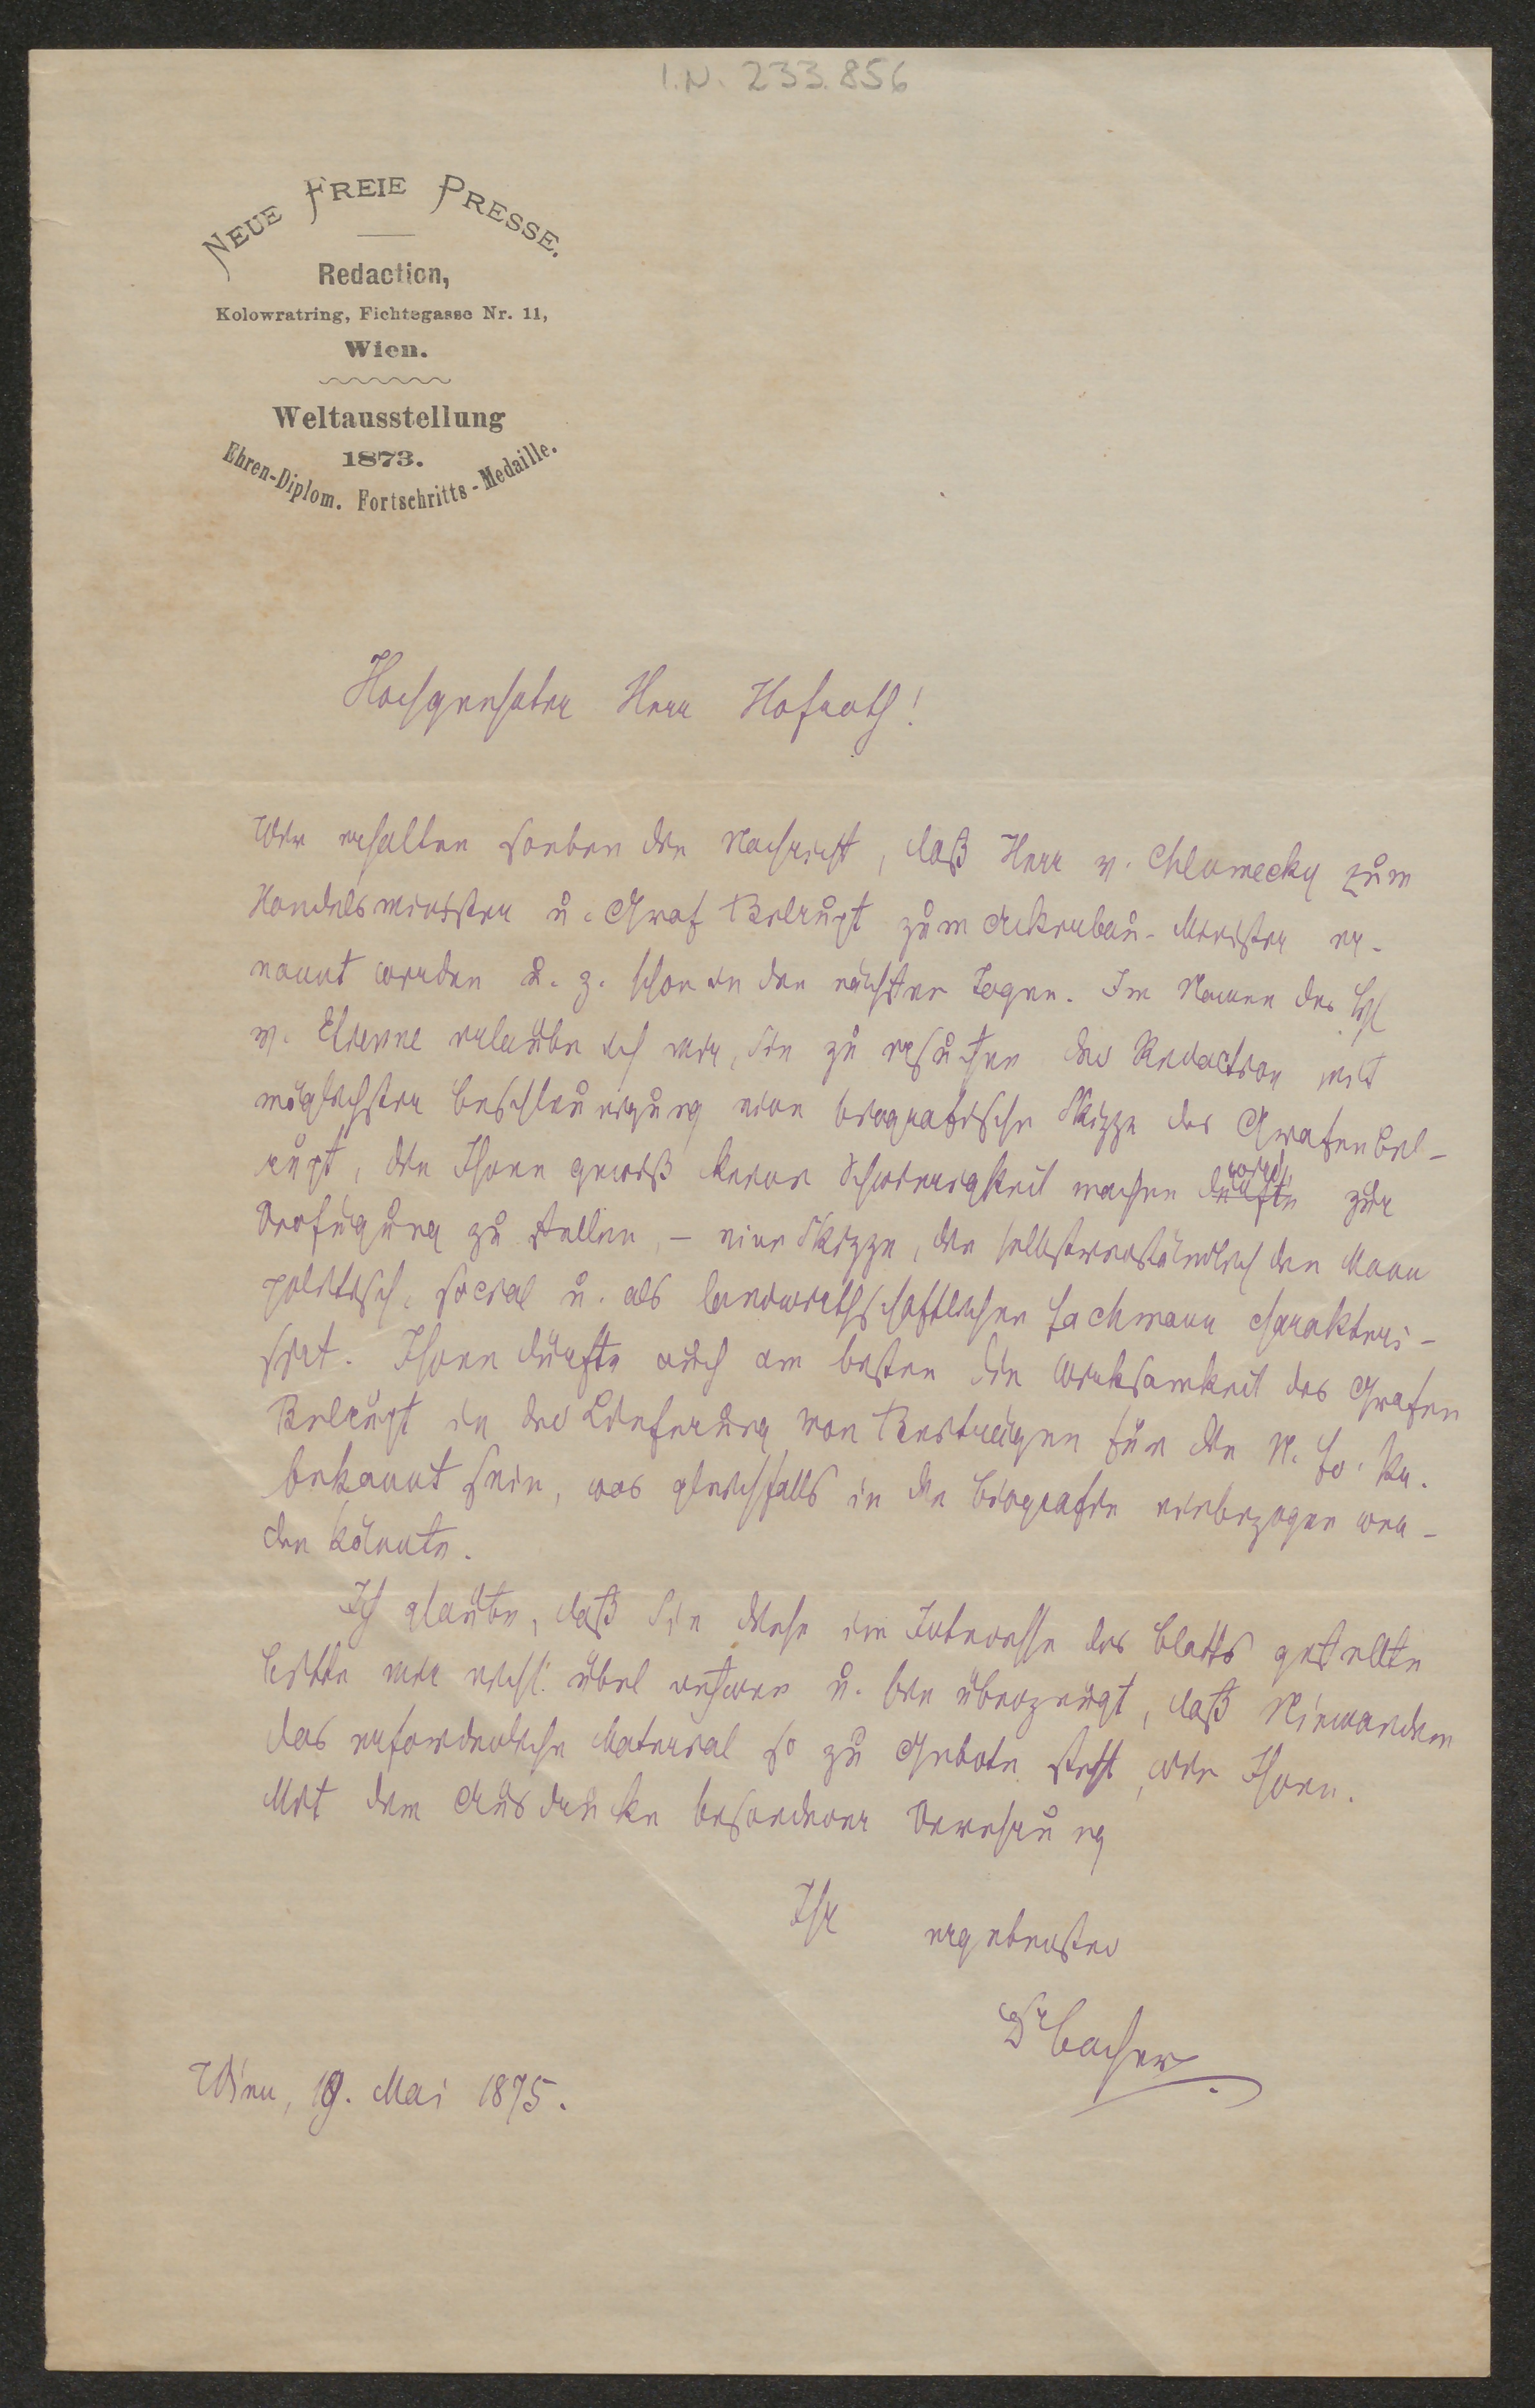 I.N. 233.856
NEUE FREIE PRESSE.
Redaction,
Kolowratring, Fichtegasse Nr. 11,
Wien.
Weltausstellung
1873.
Ehren-Diplom. Fortschritts-Medaille.
Hochgeehrter Herr Hofrath!
Wir erhalten soeben die Nachricht, daß Herr v. Chlumecky zum
Handelsminister u. Graf Belrupt zum Ackerbau-Minister er-
nannt werden u. z. schon in den nächsten Tagen. Im Namen des
v. Etienne erlaube ich mir, Sie zu ersuchen der Redaction mit
möglichster Beschleunigung eine biografische Skizze des Grafen Bel-
rupt, die Ihnen gewiß keine Schwierigkeit machen dürfte wird, zur
Verfügung zu stellen, – eine Skizze, die selbstverständlich den Mann
politisch, social u. als landwirthschaftlichen Fachmann charakteri-
sirt. Ihnen dürfte auch am besten die Wirksamkeit des Grafen
Belrupt in der Lieferung von Beiträgen für die N. Fr. Pr.
bekannt sein, was gleichfalls in die Biografie einbezogen wer-
den könnte.
Ich glaube, daß Sie diese im Interesse des Blatts gestellte
Bitte mir nicht übel nehmen u. bin überzeugt, daß Niemandem
das erforderliche Material so zu Gebote steht, wie Ihnen.
Mit dem Ausdrucke besonderer Verehrung
Ihr ergebenster
Dr Bacher
Wien, 19. Mai 1875.